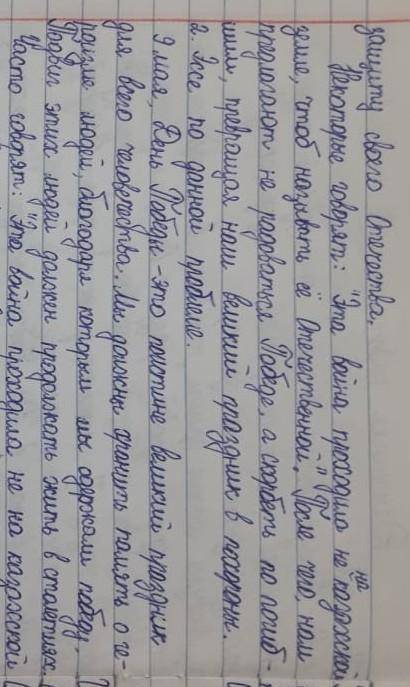 защиту своего Отечества.
Некоторые говорят: "Эта война проходила не на казахской
земле, чтоб называть её Отечественной." Более того, нам
предлагают не радоваться Победе, а скорбеть по погиб-
шим, превращая наш великий праздник в похороны.
2. Эссе по данной проблеме.
9 мая, День Победы - это поистине великий праздник
для всего человечества. Мы должны хранить память о ге-
роизме людей, благодаря которым мы одержали победу.
Подвиг этих людей должен продолжать жить в столетиях.
Часто говорят: "Эта война проходила не на казахской